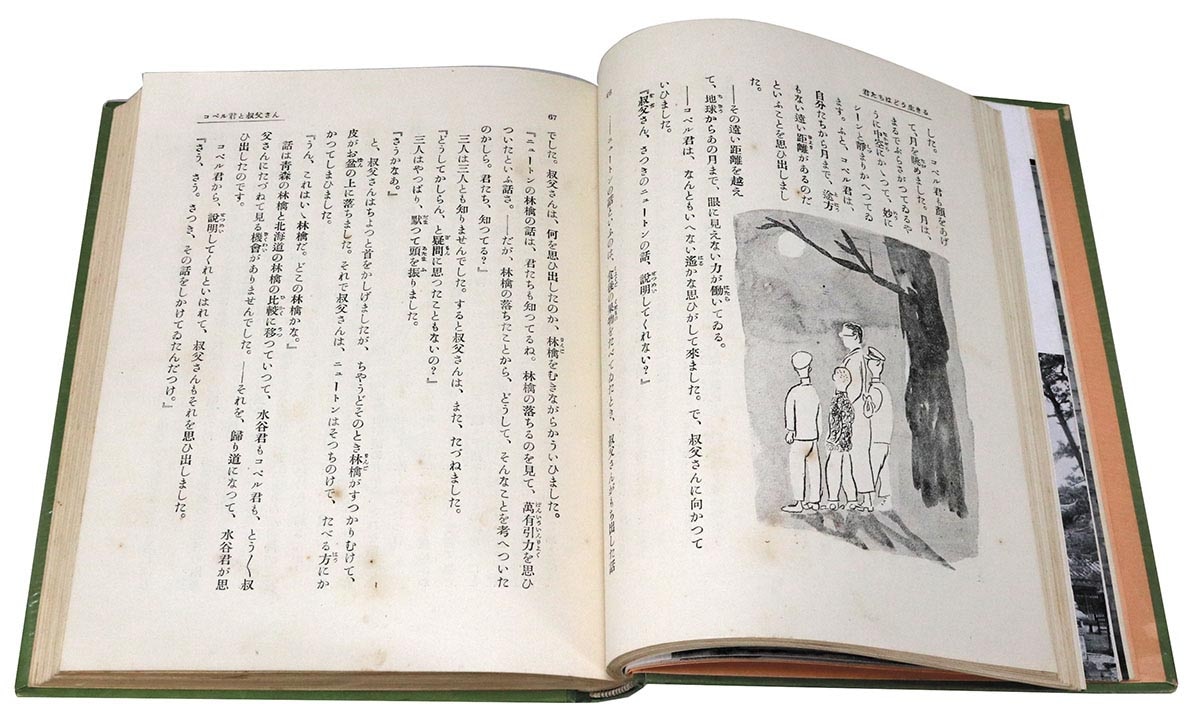 君たちはどう生きる
した。コペル君も顔をあげ
て、月を眺めました。月は、
まるでぶらさがつてゐるや
うに中空にかゝつて、妙に
シーンと靜まりかへつてゐ
ます。ふと、コペル君は、
自分たちから月まで、途方
もない遠い距離があるのだ
といふことを思ひ出しまし
た。
——その遠い距離を越え
て、地球からあの月まで、眼に見えない力が働いてゐる。
——コペル君は、なんともいへない遙かな思ひがして來ました。で、叔父さんに向かつて
いひました。
『叔父さん、さつきのニュートンの話、說明してくれない？』
——ニュートンの話といふのは、食後の果物をたべてゐたとき、叔父さんがもち出した話
67
でした。叔父さんは、何を思ひ出したのか、林檎をむきながらかういひました。
『ニュートンの林檎の話は、君たちも知つてるね。林檎の落ちるのを見て、萬有引力を思ひ
ついたといふ話さ。——だが、林檎の落ちたことから、どうして、そんなことを考へついた
のかしら。君たち、知つてる？』
三人は三人とも知りませんでした。すると叔父さんは、また、たづねました。
『どうしてかしらん、と疑問に思つたこともないの？』
三人はやつぱり、默つて頭を振りました。
『さうかなあ。』
と、叔父さんはちよつと首をかしげましたが、ちやうどそのとき林檎がすつかりむけて、
皮がお盆の上に落ちました。それで叔父さんは、ニュートンはそつちのけで、たべる方にか
かつてしまひました。
『うん、これはいゝ林檎だ。どこの林檎かな。』
話は靑森の林檎と北海道の林檎の比較に移つていつて、水谷君もコペル君も、とう〱叔
父さんにたづねて見る機會がありませんでした。——それを、歸り道になつて、水谷君が思
ひ出したのです。
コペル君から、說明してくれといはれて、叔父さんもそれを思ひ出しました。
『さう、さう。さつき、その話をしかけてゐたんだつけ。』
コペル君と叔父さん